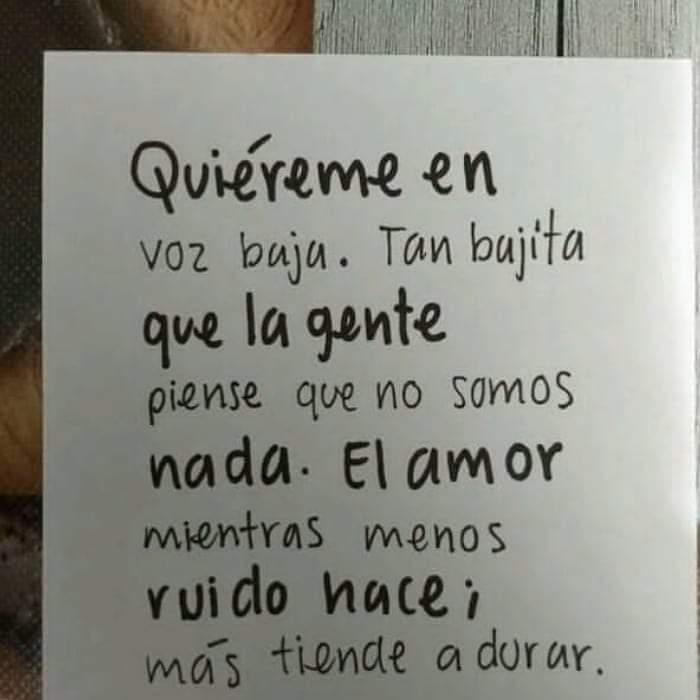 Quiéreme en
voz baja. Tan bajita
que la gente
piense que no somos
nada. El amor
mientras menos
ruido hace;
más tiende a durar.